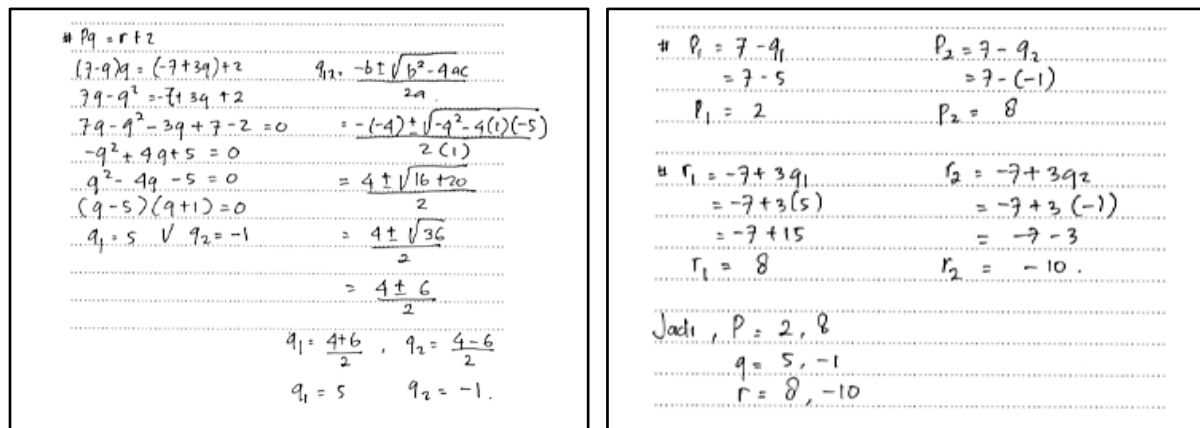 # Pq = r + 2
(7-q)q = (-7+3q)+2
7q - q² = -7 + 3q + 2
7q - q² - 3q + 7 - 2 = 0
-q² + 4q + 5 = 0
q² - 4q - 5 = 0
(q-5)(q+1) = 0
q₁ = 5 V q₂ = -1
q₁₂ = (-b ± √(b² - 4ac)) / 2a
= (-(-4) ± √(-4² - 4(1)(-5))) / 2(1)
= (4 ± √(16 + 20)) / 2
= (4 ± √36) / 2
= (4 ± 6) / 2
q₁ = (4+6)/2 , q₂ = (4-6)/2
q₁ = 5 q₂ = -1.
# P₁ = 7 - q₁
= 7 - 5
P₁ = 2
P₂ = 7 - q₂
= 7 - (-1)
P₂ = 8
# r₁ = -7 + 3q₁
= -7 + 3(5)
= -7 + 15
r₁ = 8
r₂ = -7 + 3q₂
= -7 + 3(-1)
= -7 - 3
r₂ = -10.
Jadi, P = 2, 8
q = 5, -1
r = 8, -10